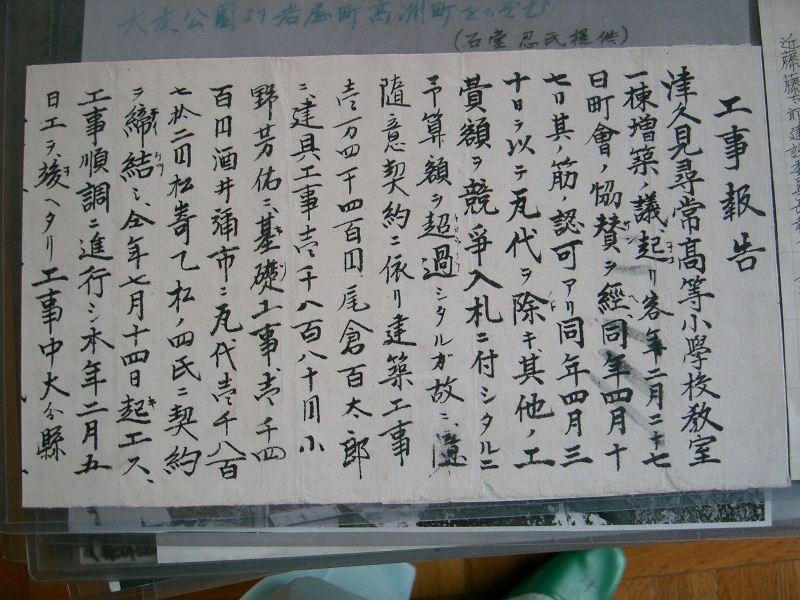 大友公園より岩屋町高洲町をのぞむ
(石堂忍氏提供)
工事報告
津久見尋常高等小學校教室
一棟増築ノ議起リ客年二月二十七
日町會ノ協賛ヲ經同年四月十
七日其ノ筋ノ認可アリ同年四月三
十日ヲ以テ瓦代ヲ除キ其他ノ工
費額ヲ競爭入札ニ付シタルニ
予算額ヲ超過シタルガ故ニ
隨意契約ニ依リ建築工事
壱万四千四百円尾倉百太郎
ニ建具工事壱千八百八十円小
野芳佑ニ基礎工事壱千四
百円酒井彌市ニ瓦代壱千八百
七拾二円松嵜乙松ノ四氏ニ契約
ヲ締結シ仝年七月十四日起工ス
工事順調ニ進行シ本年二月五
日工ヲ竣ヘタリ工事中大分縣